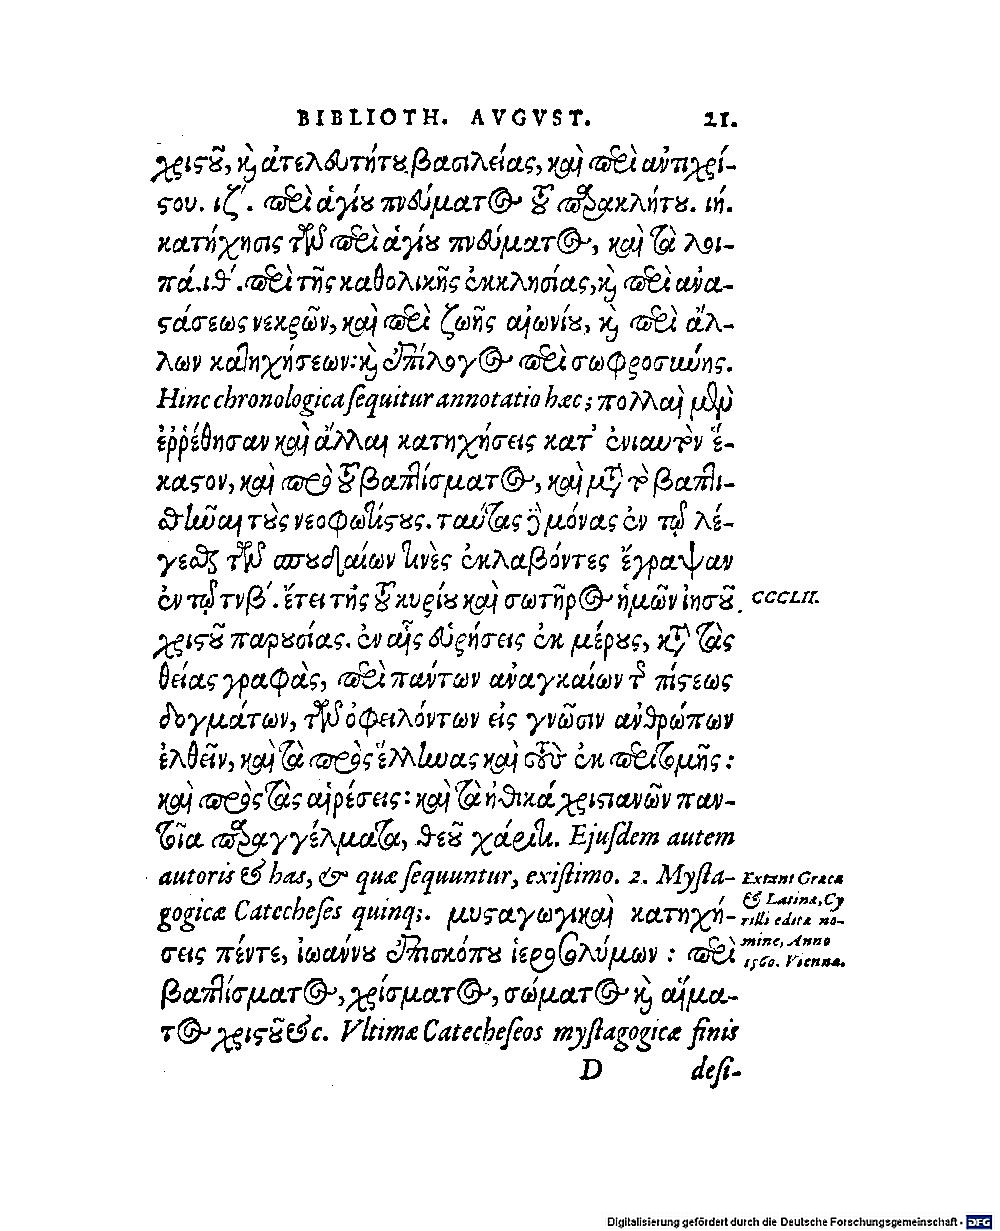 BIBLIOTH. AVGVST. 21.
χριστοῦ, καὶ ἀτελευτήτου βασιλείας, καὶ περὶ αὐτιχρί-
στου. ιζʹ. περὶ ἁγίου πνεύματος τοῦ παρακλήτου. ιή.
κατήχησις τῶν περὶ ἁγίου πνεύματος, καὶ τὰ λοι-
πά. ιθʹ. περὶ τῆς καθολικῆς ἐκκλησίας, καὶ περὶ ἀνα-
στάσεως νεκρῶν, καὶ περὶ ζωῆς αἰωνίου, καὶ περὶ ἄλ-
λων κατηχήσεων: καὶ ἐπίλογος περὶ σωφροσύνης.
Hinc chronologica sequitur annotatio hæc; πολλαὶ μὲν
ἐῤῥέθησαν καὶ ἄλλαι κατηχήσεις κατ' ἐνιαυτὸν ἕ-
καστον, καὶ πρὸ τοῦ βαπτίσματος, καὶ μετὰ τὸ βαπτι-
σθῆναι τοὺς νεοφωτίστους. ταύτας δὲ μόνας ἐν τῷ λέ-
γεσθαι τῶν σπουδαίων τινὲς ἐκλαβόντες ἔγραψαν
ἐν τῷ τνβʹ. ἔτει τῆς τοῦ κυρίου καὶ σωτῆρος ἡμῶν ἰησοῦ
CCCLII.
χριστοῦ παρουσίας. ἐν αἷς εὑρήσεις ἐκ μέρους, κατὰ τὰς
θείας γραφὰς, περὶ πάντων ἀναγκαίων τῆς πίστεως
δογμάτων, τῶν ὀφειλόντων εἰς γνῶσιν ἀνθρώπων
ἐλθεῖν, καὶ τὰ πρὸς ἕλληνας καὶ τοὺς ἐκ περιτομῆς:
καὶ πρὸς τὰς αἱρέσεις: καὶ τὰ ἠθικά χριστιανῶν παν-
τοῖα παραγγέλματα, θεοῦ χάριτι. Ejusdem autem
autoris & has, & quæ sequuntur, existimo. 2. Mysta-
gogicæ Catecheses quinq;. μυσταγωγικαὶ κατηχή-
σεις πέντε, ἰωάννου ἐπισκόπου ἱεροσολύμων : περὶ
Extant Græcæ
& Latinæ, Cy
rilli edita no-
mine, Anno
1560. Viennæ.
βαπτίσματος, χρίσματος, σώματος καὶ αἵμα-
τος χριστοῦ &c. Vltimæ Catecheseos mystagogicæ finis
D desi-
Digitalisierung gefördert durch die Deutsche Forschungsgemeinschaft - DFG